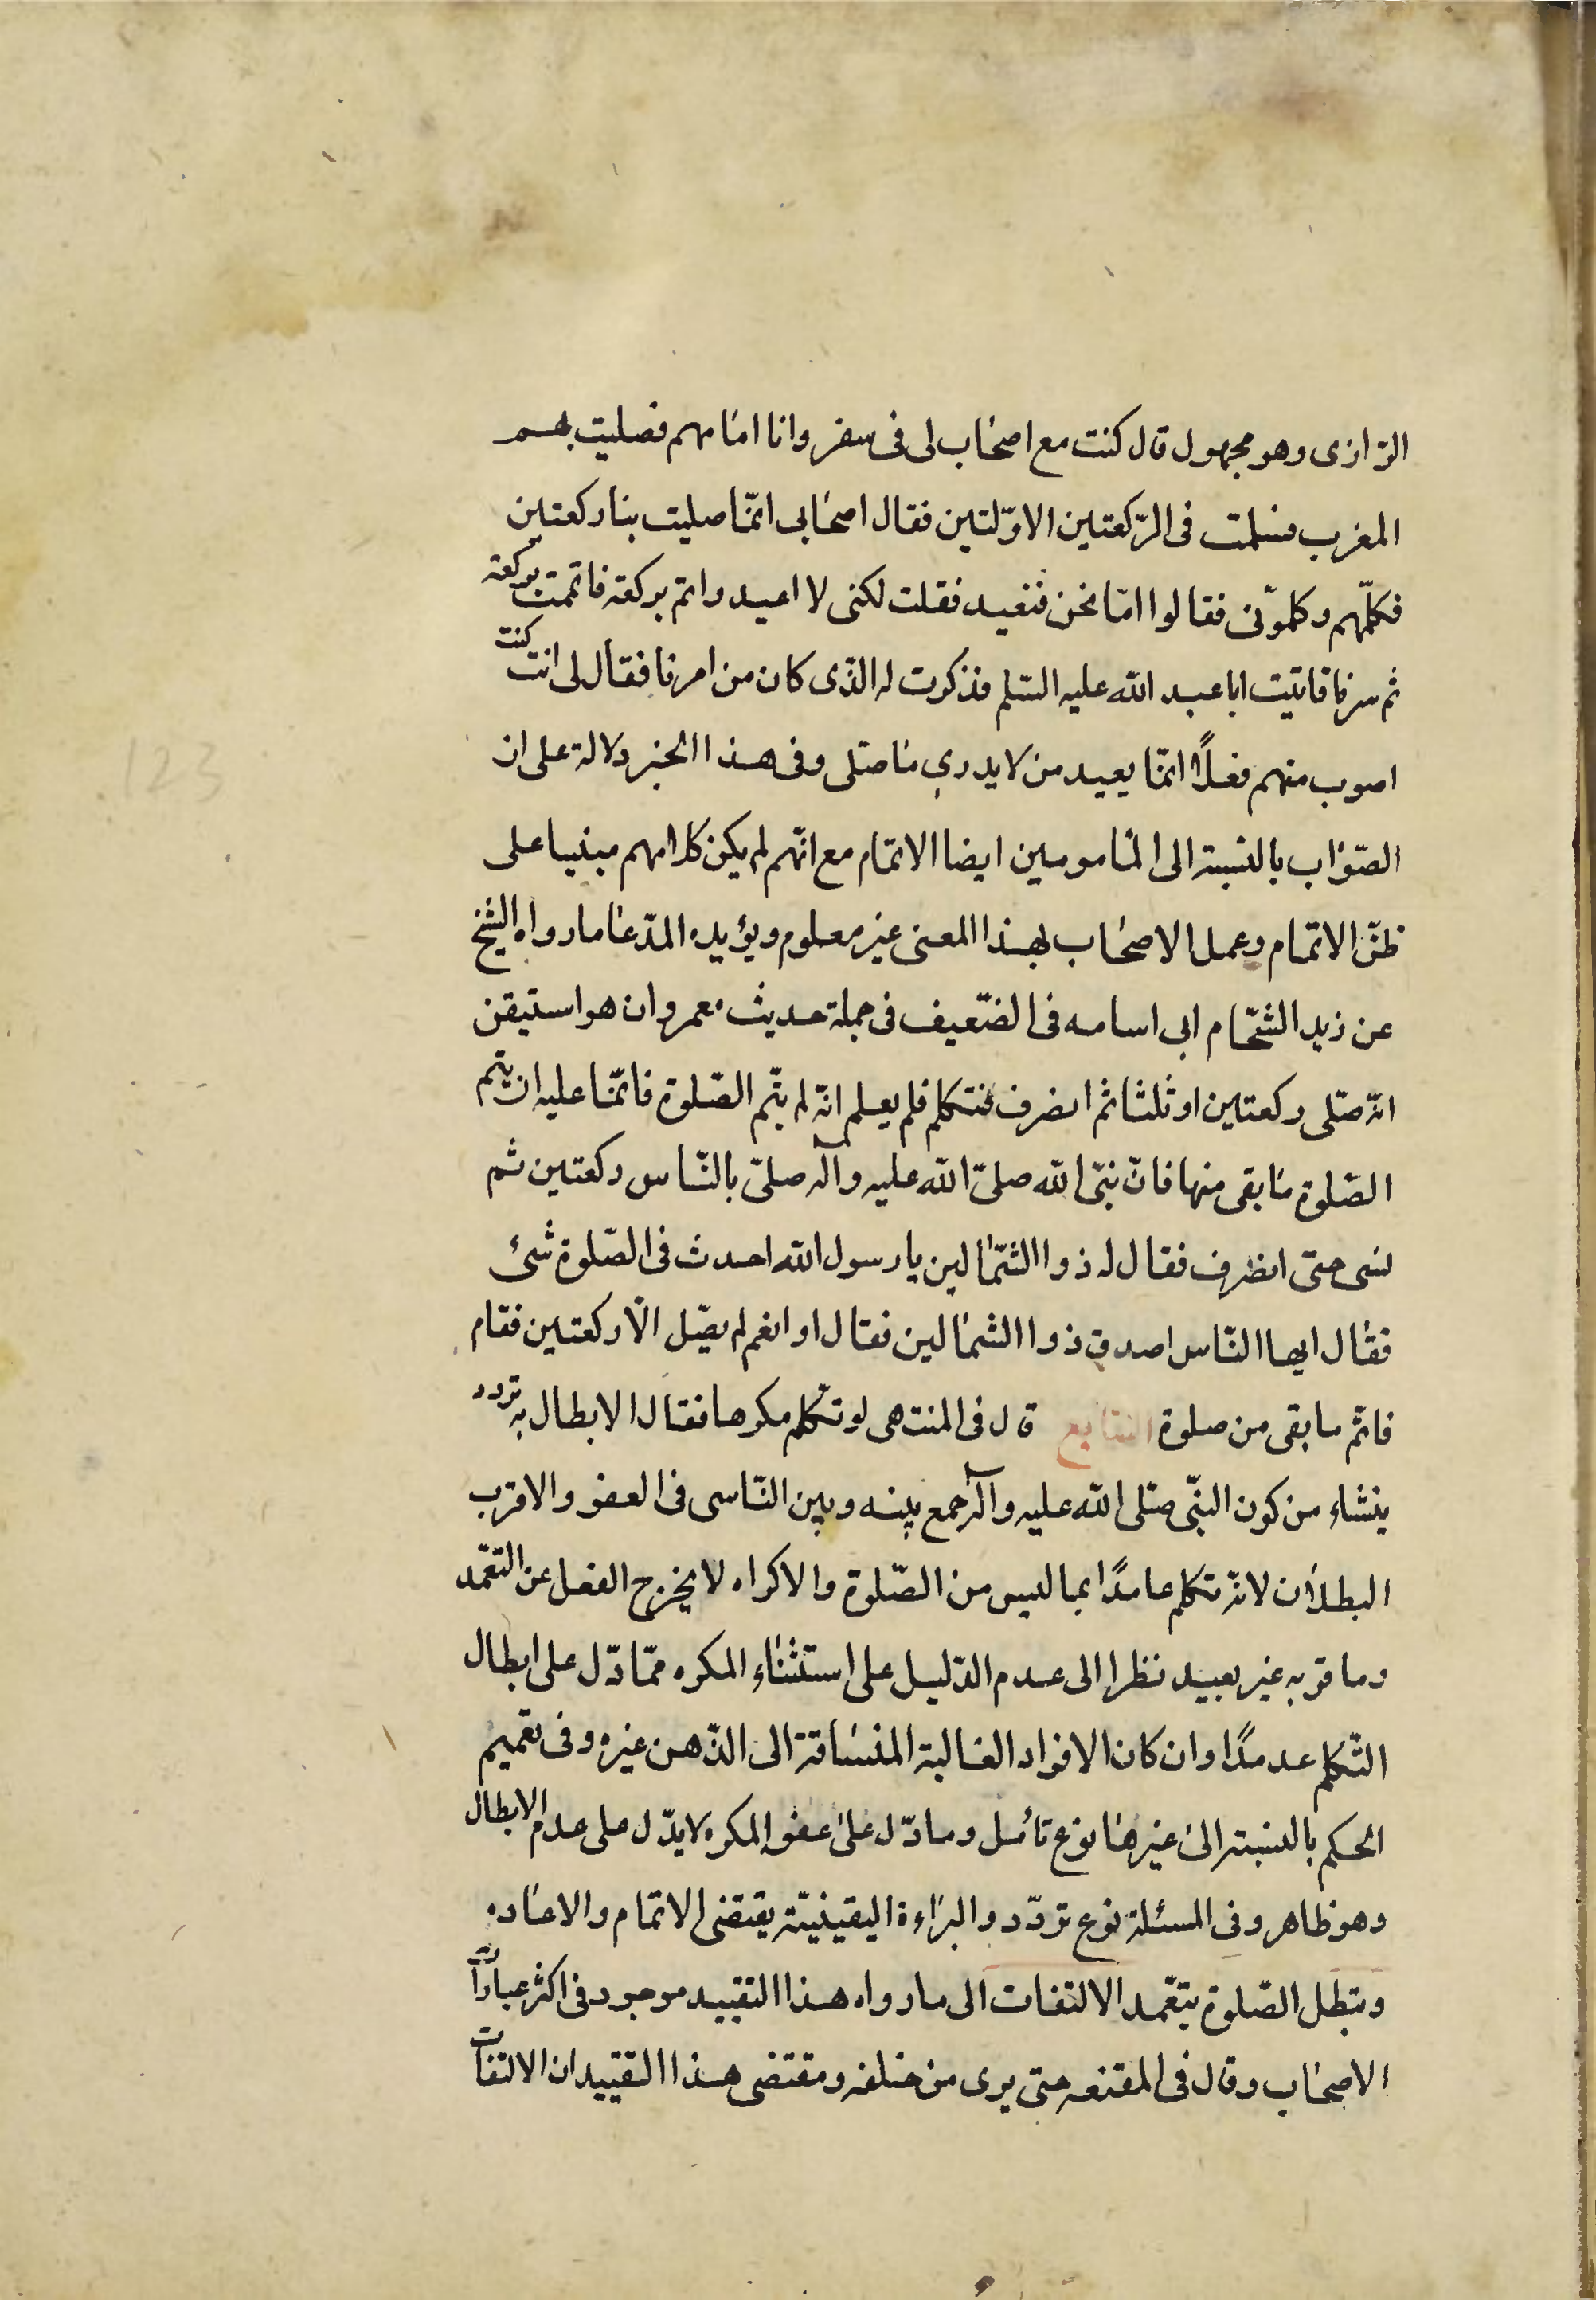 الرّازى وهو مجهول قال كنت مع اصحاب لى فى سفر وانا امامهم فصليت بهم
المغرب فسلمت فى الرّكعتين الاوّلتين فقال اصحابى انّما صليت بنا ركعتين
فكلّمهم وكلمونى فقالوا امّا نحن فنعيد فقلت لكنى لا اعيد واتم بركعة فاتممت بركعة
ثم سرنا فاتيت ابا عبد الله عليه السّلم فذكرت له الذّى كان من امرنا فقال لى انت كنت
اصوب منهم فعلاً انّما يعيد من لا يدري ما صلّى وفى هذا الخبر دلالة على ان
الصّواب بالنسبة الى المأمومين ايضا الاتمام مع انّهم لم يكن كلامهم مبنيا على
ظنّ الاتمام وعمل الاصحاب بهذا المعنى غير معلوم ويؤيده المدّعا ما رواه الشيخ
عن زيد الشحّام ابى اسامه فى الضّعيف فى جملة حديث معمر وان هو استيقن
انّه صلّى ركعتين او ثلثا ثم انصرف فتكلم فلم يعلم انّه لم يتم الصّلوة فانّما عليه ان يتم
الصّلوة ما بقى منها فانّ نبىّ الله صلىّ الله عليه وآله صلىّ بالنّاس ركعتين ثم
نسى حتى انصرف فقال له ذوا الشّمالين يا رسول الله احدث فى الصّلوة شئ
فقال ايها النّاس اصدق ذوا الشمالين فقال او انغم لم يصّل الاّ ركعتين فقام
فاتمّ ما بقى من صلوة التابع قال فى المنتهى لو تكلّم مكرها فقال الابطال به تردد
ينشاء من كون النبّى صلّى الله عليه وآله جمع بينه وبين النّاسى فى العفو والاقرب
البطلان لانّه تكلم عامدًا بما ليس من الصّلوة والاكراه لا يخرج الفعل عن التعمّد
وما قربه غير بعيد نظرا الى عدم الدّليل على استثناء المكره ممّا دّل على ابطال
التّكلم عدمدًا وان كان الافراد الغالبة المنساقة الى الذّهن غيره وفى تعميم
الحكم بالنسبة الى غيرها نوع تأمل وما دّل على عفو المكره لا يدّل على عدم الابطال
وهو ظاهر وفى المسئلة نوع تردّد والبراءة اليقينيّة يقتضى الاتمام والاعاده
وتبطل الصّلوة بتعّمد الالتفات الى ما رواه هذا التقييد موجود فى اكثر عبارات
الاصحاب وقال فى المقنعه حتى يرى من خلفه ومقتضى هذا التقييد ان الالتفات
123